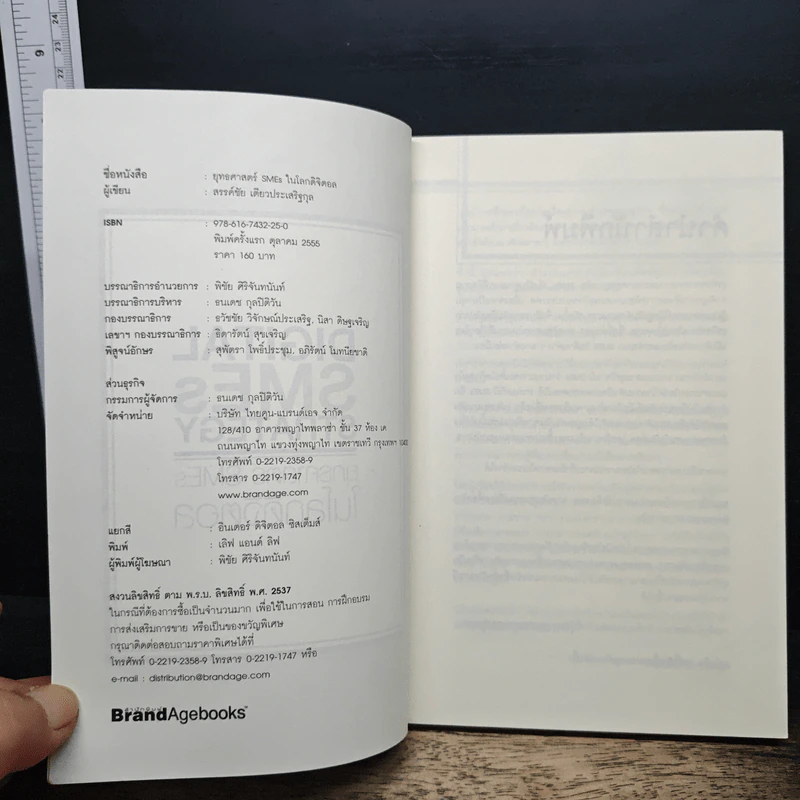 ชื่อหนังสือ : ยุทธศาสตร์ SMEs ในโลกดิจิตอล
ผู้เขียน : สรรค์ชัย เตียวประเสริฐกุล
ISBN : 978-616-7432-25-0
พิมพ์ครั้งแรก ตุลาคม 2555
ราคา 160 บาท
บรรณาธิการอำนวยการ : พิชัย ศิริจันทนันท์
บรรณาธิการบริหาร : ธนเดช กุลปิติวัน
กองบรรณาธิการ : ธวัชชัย วิจักษณ์ประเสริฐ, นิสา ดิษฐเจริญ
เลขาฯ กองบรรณาธิการ : ธิดารัตน์ สุขเจริญ
พิสูจน์อักษร : สุพัตรา โพธิ์ประชุม, อภิรัตน์ โมทนียชาติ
ส่วนธุรกิจ
กรรมการผู้จัดการ : ธนเดช กุลปิติวัน
จัดจำหน่าย : บริษัท ไทยคูน-แบรนด์เอจ จำกัด
128/410 อาคารพญาไทพลาซ่า ชั้น 37 ห้อง เค
ถนนพญาไท แขวงทุ่งพญาไท เขตราชเทวี กรุงเทพฯ 10400
โทรศัพท์ 0-2219-2358-9
โทรสาร 0-2219-1747
www.brandage.com
แยกสี : อินเตอร์ ดิจิตอล ซิสเต็มส์
พิมพ์ : เลิฟ แอนด์ ลิฟ
ผู้พิมพ์ผู้โฆษณา : พิชัย ศิริจันทนันท์
สงวนลิขสิทธิ์ ตาม พ.ร.บ. ลิขสิทธิ์ พ.ศ. 2537
ในกรณีที่ต้องการซื้อเป็นจำนวนมาก เพื่อใช้ในการสอน การฝึกอบรม
การส่งเสริมการขาย หรือเป็นของขวัญพิเศษ
กรุณาติดต่อสอบถามราคาพิเศษได้ที่
โทรศัพท์ 0-2219-2358-9 โทรสาร 0-2219-1747 หรือ
e-mail : distribution@brandage.com
สำนักพิมพ์
BrandAgebooks